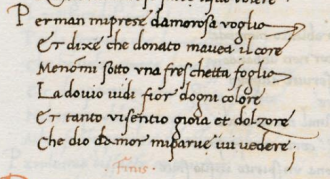 Per man mi prese damorosa voglia
Et dixe che donato mavea il core
Menomi sotto una freschetta foglia
La dovio vidi fior dogni colore
Et tanto vi sentio gioia et dolzore
Che dio damor mi parve ivi vedere ;
Finis.